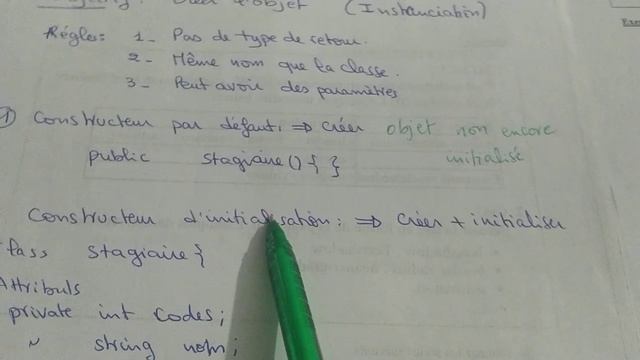 Créer d'objet (Instanciation)
Régles: 1- Pas de type de retour.
2- Même nom que la classe.
3- Peut avoir des paramètres
1 Constructeur par défaut: ⇒ créer objet non encore
initialisé
public stagiaire(){ }
Constructeur d'initialisation: ⇒ créer + initialiser
class stagiaire{
Attributs
private int codes;
" string nom;